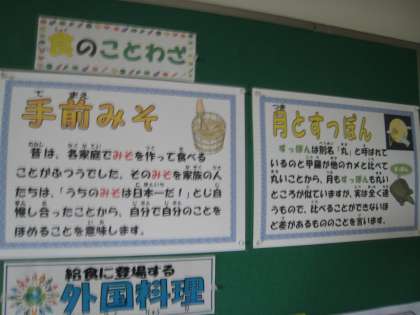 食のことわざ
手前みそ
昔は、各家庭でみそを作って食べる
ことがふつうでした。そのみそを家族の人
たちは、「うちのみそは日本一だ！」とじ自
慢し合ったことから、自分で自分のことを
ほめることを意味します。
月とすっぽん
すっぽんは別名「丸」と呼ばれて
いるのと甲羅が他のカメと比べて
丸いことから、月もすっぽんも丸い
ところが似ていますが、実は全く違
うもので、比べることができないほ
ど差があるもののことを言います。
給食に登場する
外国料理